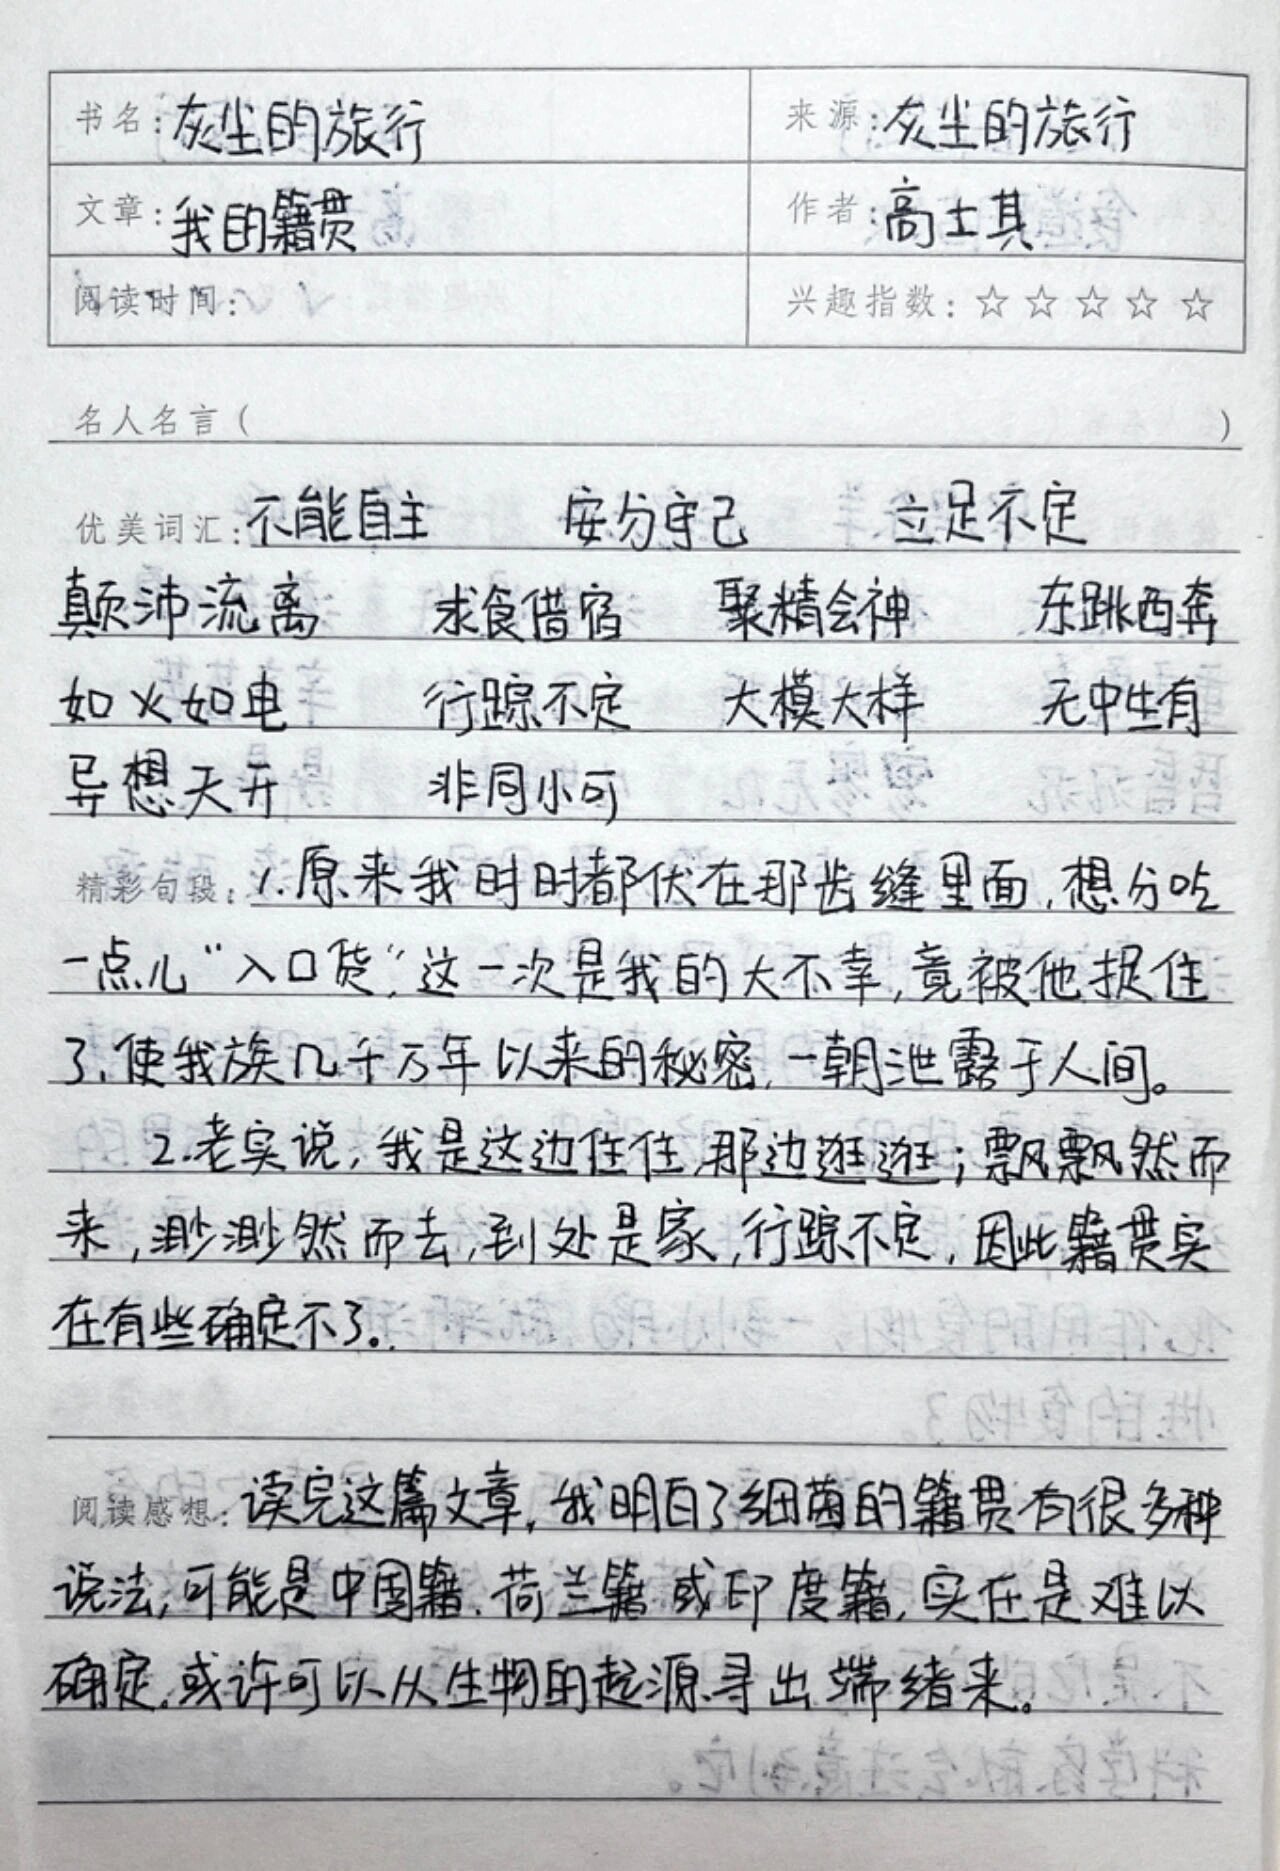 书名：灰尘的旅行 来源：灰尘的旅行
文章：我的籍贯 作者：高士其
阅读时间： 兴趣指数：☆☆☆☆☆
名人名言（ ）
优美词汇：不能自主 安分守己 立足不定
颠沛流离 求食借宿 聚精会神 东跳西奔
如火如电 行踪不定 大模大样 无中生有
异想天开 非同小可
精彩句段：1.原来我时时都伏在那齿缝里面,想分吃
一点儿“入口货”,这一次是我的大不幸,竟被他捉住
了,使我族几千万年以来的秘密,一朝泄露于人间。
2.老实说,我是这边住住,那边逛逛;飘飘然而
来,渺渺然而去,到处是家,行踪不定,因此籍贯实
在有些确定不了。
阅读感想：读完这篇文章,我明白了细菌的籍贯有很多种
说法,可能是中国籍、荷兰籍或印度籍,实在是难以
确定,或许可以从生物的起源寻出端绪来。